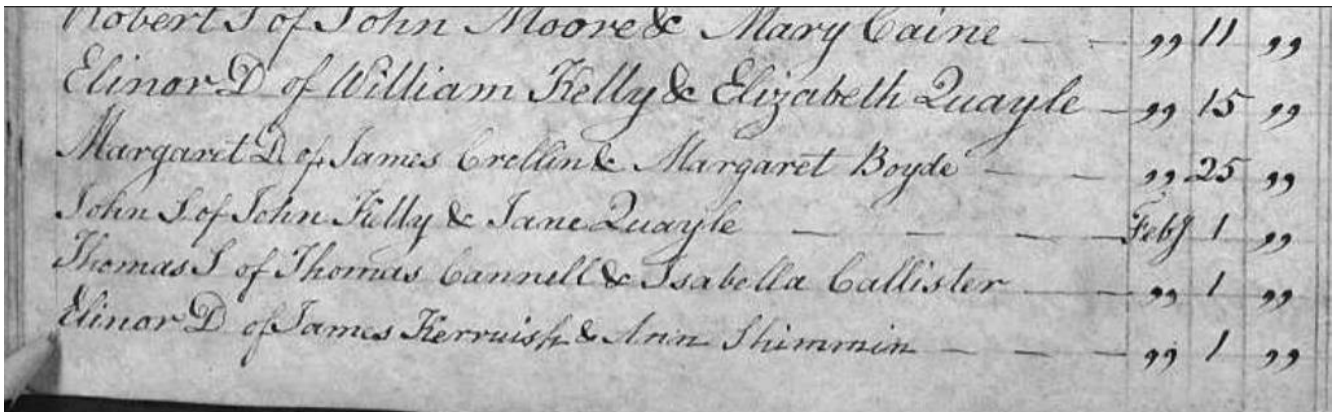 Robert S of John Moore & Mary Caine — — „ 11 „
Elinor D of William Kelly & Elizabeth Quayle — „ 15 „
Margaret D of James Crellin & Margaret Boyde — — „ 25 „
John S of John Kelly & Jane Quayle — — — — Feby 1 „
Thomas S of Thomas Cannell & Isabella Callister — — „ 1 „
Elinor D of James Kerruish & Ann Shimmin — — — „ 1 „